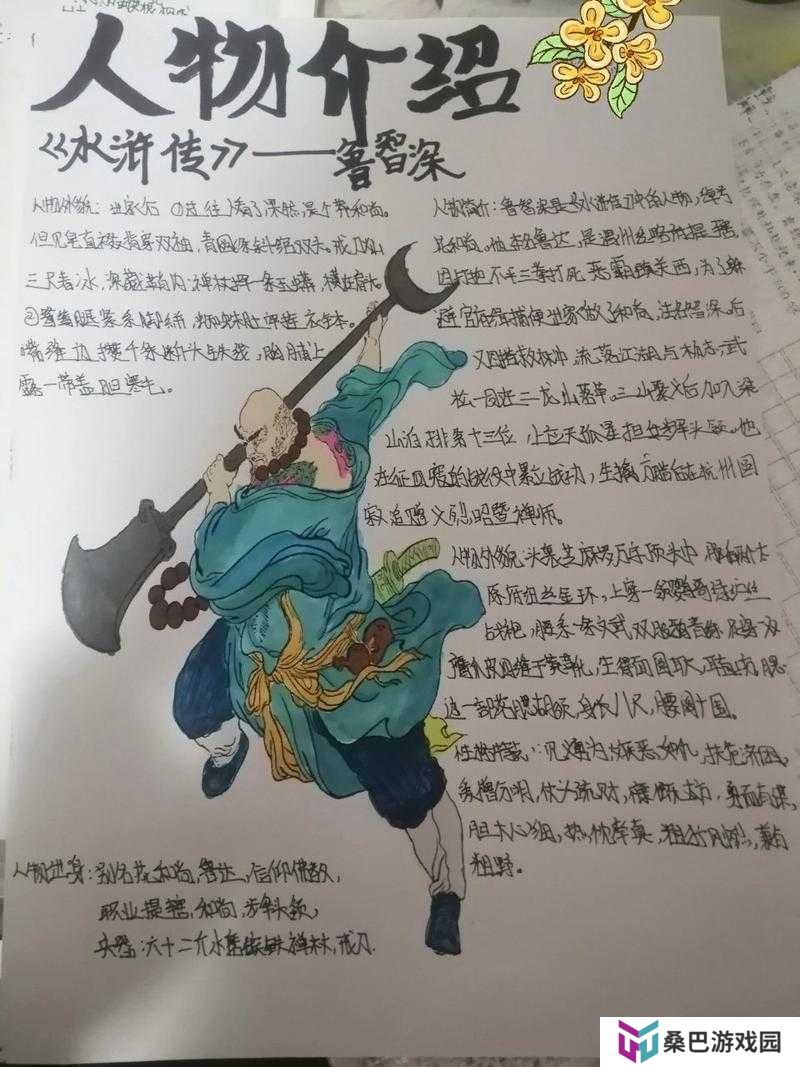 人物介绍
《水浒传》——鲁智深
人物外貌:出家后 看了果然是个莽和尚。
但见皂直裰背穿双袖,青圆绦斜绾双头。戒刀
三尺春冰,深藏鞘内;禅杖挥一条玉蟒,横在肩头。
嘴缝边攒千条断头铁线,胸脯上
露一带盖胆寒毛。
人物简介:鲁智深是《水浒传》中的人物,绰号
花和尚。他本名鲁达,是渭州经略府提辖,
因打抱不平三拳打死恶霸镇关西,为了躲
避官府缉捕便出家做了和尚,法名智深。后
又因搭救林冲,流落江湖与杨志、武
松一同在二龙山落草。三山聚义后加入梁
山泊,排第十三位,上应天孤星,担任步军头领。他
在征四寇的战役中屡立战功,生擒方腊后在杭州圆
寂,追赠义烈昭暨禅师。
人物外貌:头裹芝麻罗万字顶头巾,脑后两个太
原府纽丝金环,上穿一领鹦哥绿纻丝
战袍,腰系一条文武双股鸦青绦,足穿一双
鹰爪皮四缝干黄靴,生得面圆耳大,鼻直口方,腮
边一部貉腮胡须,身长八尺,腰阔十围。
性格特点:见义勇为,嫉恶如仇,扶危济困,
爱憎分明,仗义疏财,慷慨大方,勇而有谋,
胆大心细,热忱率真,粗犷风烈,兼有
粗野。
人物出身:别名花和尚,鲁达,信仰佛教,
职业提辖,和尚,步军头领,
兵器:六十二斤水磨镔铁禅杖,戒刀.
桑巴游戏园